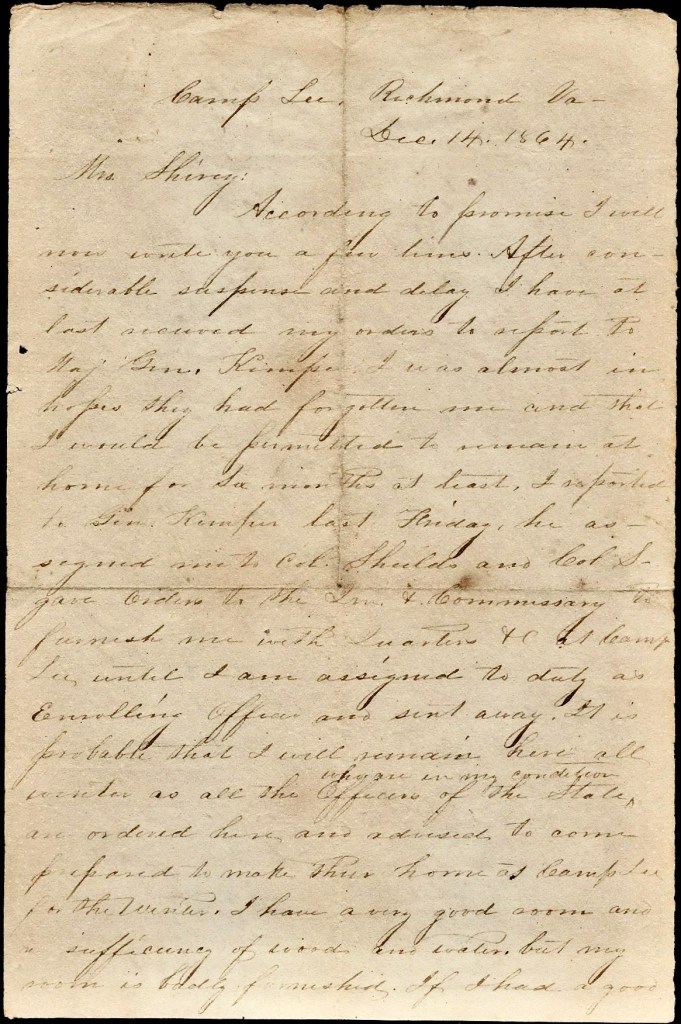 Camp Lee, Richmond Va-
Dec. 14. 1864.
Mrs. Shirey:
According to promise I will
now write you a few lines. After con-
siderable suspense and delay I have at
last received my orders to report to
Maj Gen. Kemper. I was almost in
hopes they had forgotten me and that
I would be permitted to remain at
home for six months at least. I reported
to Gen. Kemper last Friday, he as-
signed me to Col. Shields and Col S-
gave Orders to the Qr. & Commissary to
furnish me with Quarters &C at Camp
Lee, until I am assigned to duty as
Enrolling Officer and sent away. It is
probable that I will remain here all
who are in my condition
winter as all the Officers of the State,
are ordered here and advised to come
prepared to make their home at Camp Lee
for the Winter. I have a very good room and
a sufficiency of wood and water, but my
room is badly furnished. If I had a good